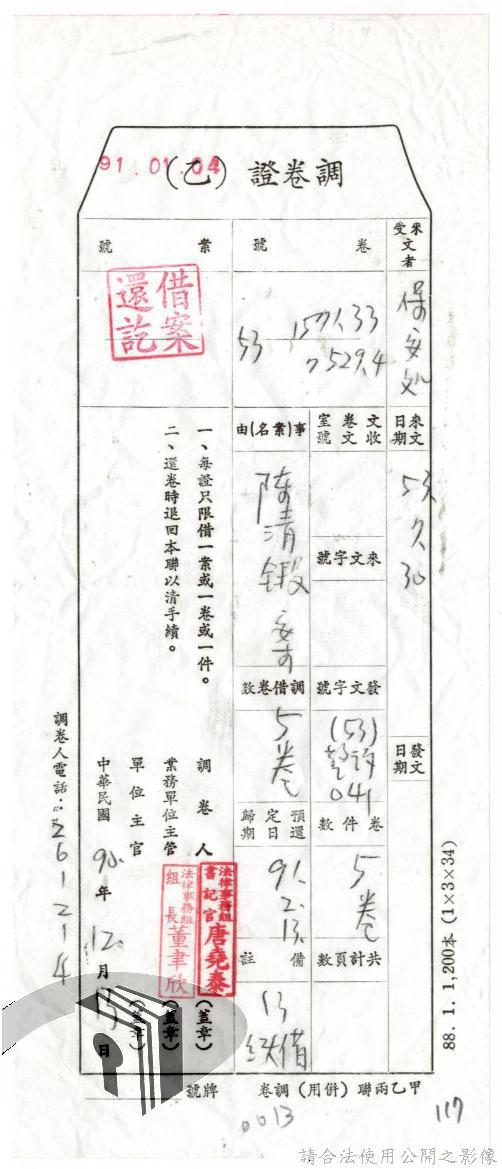 91.01.04
調卷證(乙)
來文者
受
保安處
來文日期
53
久
30
發文日期
卷號
1571.33
53
7529.4
案號
借案
還訖
收文文號
卷室
來文字號
發文字號
(53)
041
卷件數
5卷
共計頁數
事(案名)由
陳清鍛
調借卷數
5卷
預定歸還日期
91.
2.
13.
備註
13
續借
一、每證只限借一案或一卷或一件。
二、還卷時退回本聯以清手續。
調卷人
(蓋章)
法律事務組
書記官唐堯泰
業務單位主管
(蓋章)
法律事務組
組長董聿欣
單位主官
(蓋章)
中華民國 90. 年 12. 月 13 日
調卷人電話：261214
甲乙兩聯(併用)調卷
牌號
0013
117
88. 1. 1,200本 (1×3×34)
請合法使用公開之影像